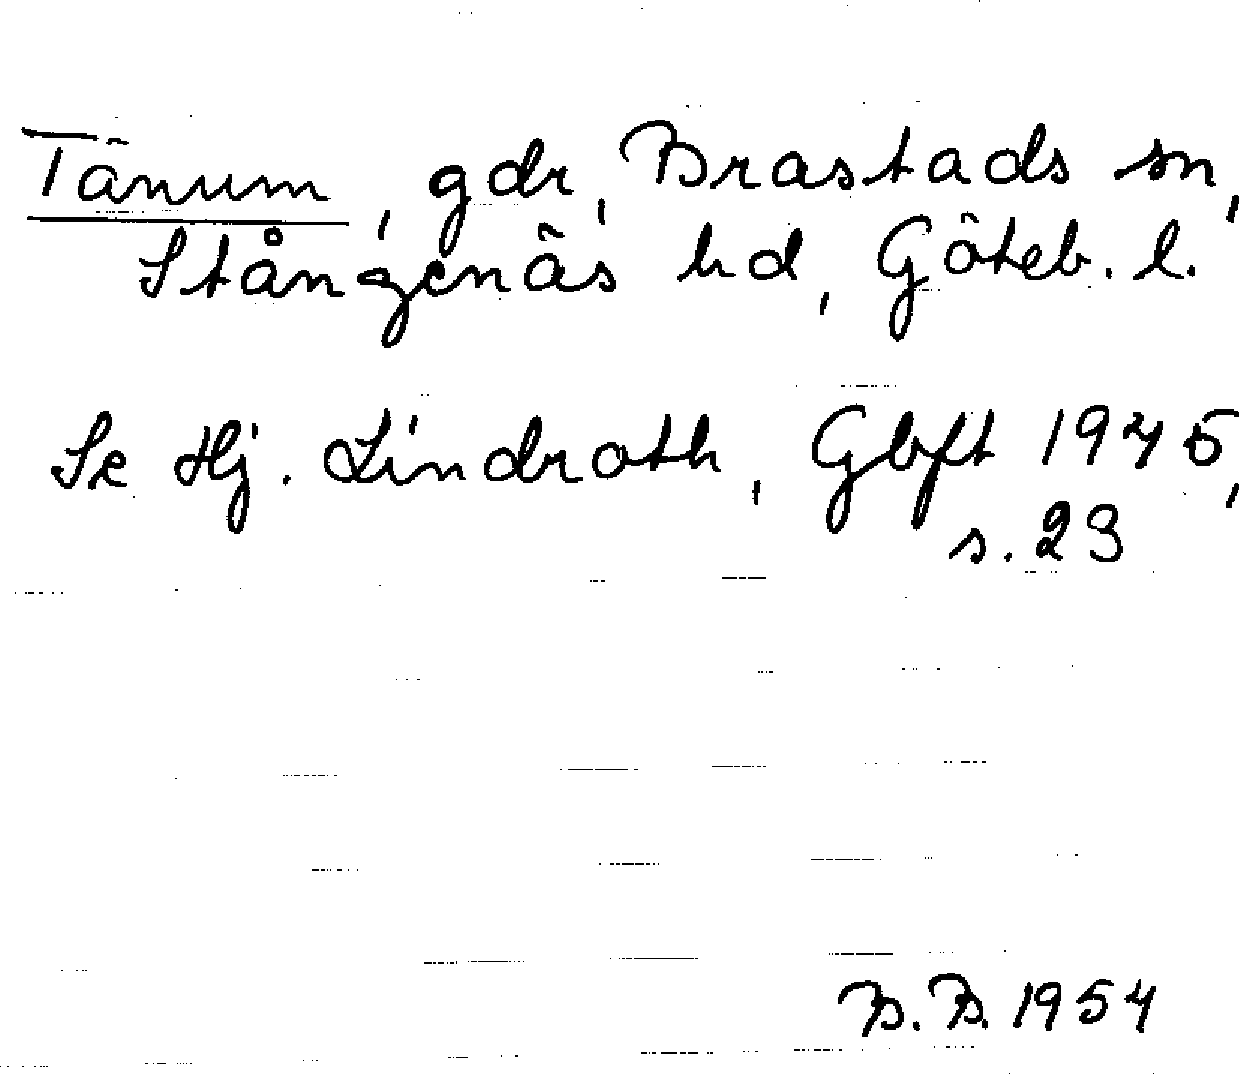 Tänum, gdr, Brastads sn,
Stångenäs hd, Göteb. l.
Se Hj. Lindroth, Gbft 1945,
s. 23
B. B. 1954